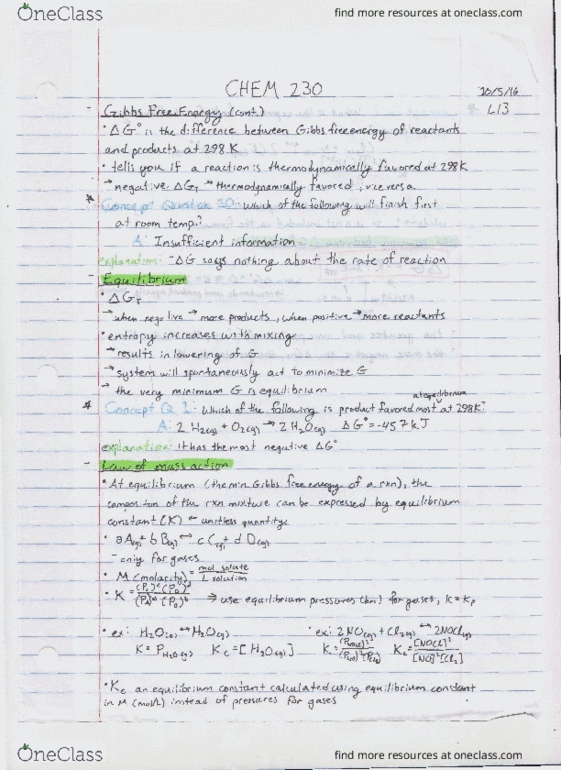 OneClass
find more resources at oneclass.com
CHEM 230
10/5/16
L13
- Gibbs Free Energy (cont.)
• ΔG° is the difference between Gibbs free energy of reactants
and products at 298 K
• tells you if a reaction is thermodynamically favored at 298K
→ negative ΔG_T → thermodynamically favored; vice versa
* Concept Question 10: Which of the following will finish first
at room temp?
A: Insufficient information
explanation: -ΔG says nothing about the rate of reaction
- Equilibrium
• ΔG_T
→ when negative → more products, when positive → more reactants
• entropy increases with mixing
→ results in lowering of G
→ system will spontaneously act to minimize G
→ the very minimum G is equilibrium
* Concept Q 1: Which of the following is product favored most at equilibrium at 298K?
A: 2 H₂(g) + O₂(g) → 2 H₂O(g) ΔG° = -457 kJ
explanation: it has the most negative ΔG°
- Law of mass action
• At equilibrium (the min Gibbs free energy of a rxn), the
composition of the rxn mixture can be expressed by equilibrium
constant (K) ← unitless quantity
• aA(g) + bB(g) ↔ cC(g) + dD(g)
- only for gases
• M (molarity) = mol solute / L solution
• K = (P_C)^c (P_D)^d / (P_A)^a (P_B)^b ⇒ use equilibrium pressures (bar) for gases, K = Kp
• ex: H₂O ↔ H₂O(g) • ex: 2NO(g) + Cl₂(g) ↔ 2NOCl(g)
K = P_H₂O(g) Kc = [H₂O(g)] K = (P_NOCl)² / (P_NO)² (P_Cl₂) Kc = [NOCl]² / [NO]² [Cl₂]
• Kc an equilibrium constant calculated using equilibrium constant
in M (mol/L) instead of pressures for gases
OneClass
find more resources at oneclass.com